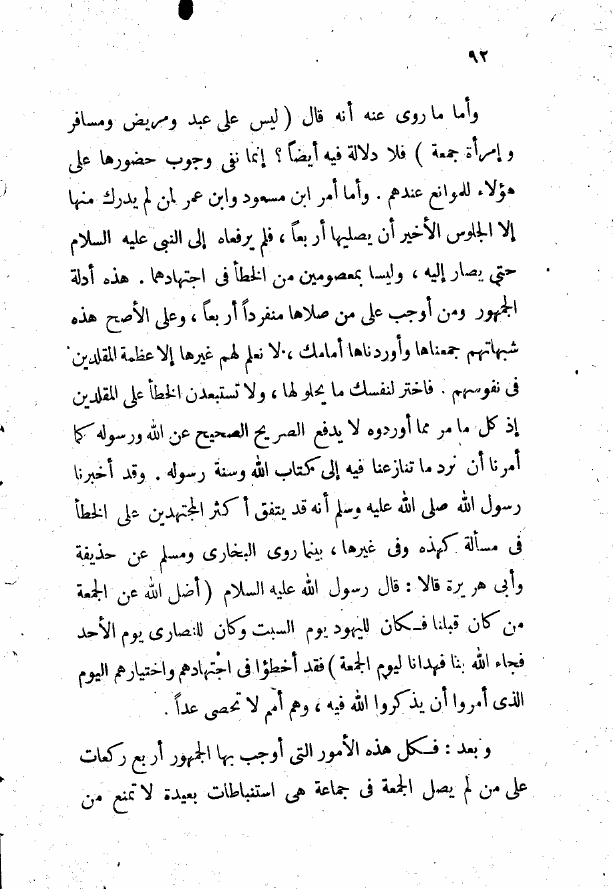 ٩٢
وأما ما روى عنه أنه قال ( ليس على عبد ومريض ومسافر
و إمرأة جمعة ) فلا دلالة فيه أيضاً ؟ إنما نفى وجوب حضورها على
هؤلاء للموانع عندهم . وأما أمر ابن مسعود وابن عمر لمن لم يدرك منها
إلا الجلوس الأخير أن يصليها أربعاً ، فلم يرفعاه إلى النبى عليه السلام
حتى يصار إليه ، وليسا بمعصومين من الخطأ فى اجتهادهما . هذه أدلة
الجمهور ومن أوجب على من صلاها منفرداً أربعاً ، وعلى الأصح هذه
شبهاتهم جمعناها وأوردناها أمامك ، لا نعلم لهم غيرها إلا عظمة المقلدين
فى نفوسهم . فاختر لنفسك ما يحلو لها ، ولا تستبعدن الخطأ على المقلدين
إذ كل ما مر مما أوردوه لا يدفع الصريح الصحيح عن الله ورسوله كما
أمرنا أن نرد ما تنازعنا فيه إلى كتاب الله وسنة رسوله . وقد أخبرنا
رسول الله صلى الله عليه وسلم أنه قد يتفق أكثر المجتهدين على الخطأ
فى مسألة كهذه وفى غيرها ، بينما روى البخارى ومسلم عن حذيفة
وأبى هريرة قالا : قال رسول الله عليه السلام ( أضل الله عن الجمعة
من كان قبلنا فكان لليهود يوم السبت وكان للنصارى يوم الأحد
فجاء الله بنا فهدانا ليوم الجمعة ) فقد أخطؤا فى اجتهادهم واختيارهم اليوم
الذى أمروا أن يذكروا الله فيه ، وهم أمم لا تحصى عداً .
و بعد : فكل هذه الأمور التى أوجب بها الجمهور أربع ركعات
على من لم يصل الجمعة فى جماعة هى استنباطات بعيدة لا تمنع من